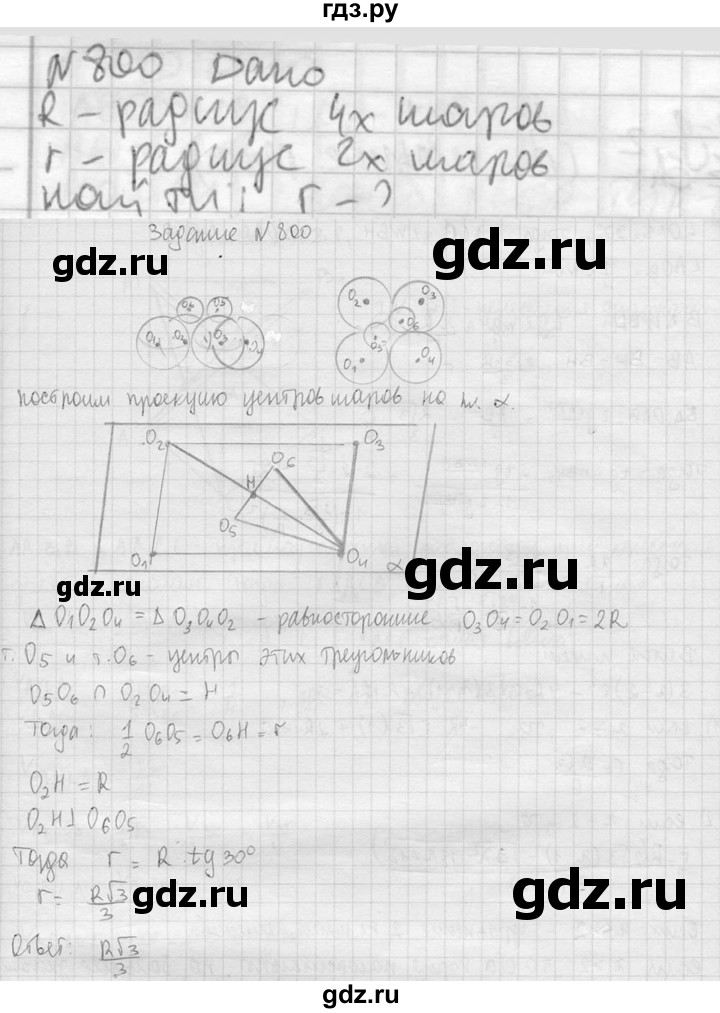 гдз.ру
N 800 Дано
R - радиус 4х шаров
r - радиус 2х шаров
найти: r - ?
Задание N 800
gdz.ru
gdz.ru
O5
O1
O2
O3
O4
O2
O3
O6
O5
O1
O4
построим проекцию центров шаров на пл. α.
O2
O3
O6
H
O5
O1
O4
α
gdz.ru
gdz.ru
Δ O1O2O4 = Δ O3O4O2 - равносторонние O3O4 = O2O1 = 2R
т. O5 и т. O6 - центры этих треугольников
O5O6 ∩ O2O4 = H
Тогда: 1/2 O6O5 = O6H = r
O2H = R
O2H ⊥ O6O5
Тогда r = R · tg 30°
r = R√3/3
gdz.ru
gdz.ru
Ответ: R√3/3
gdz.ru